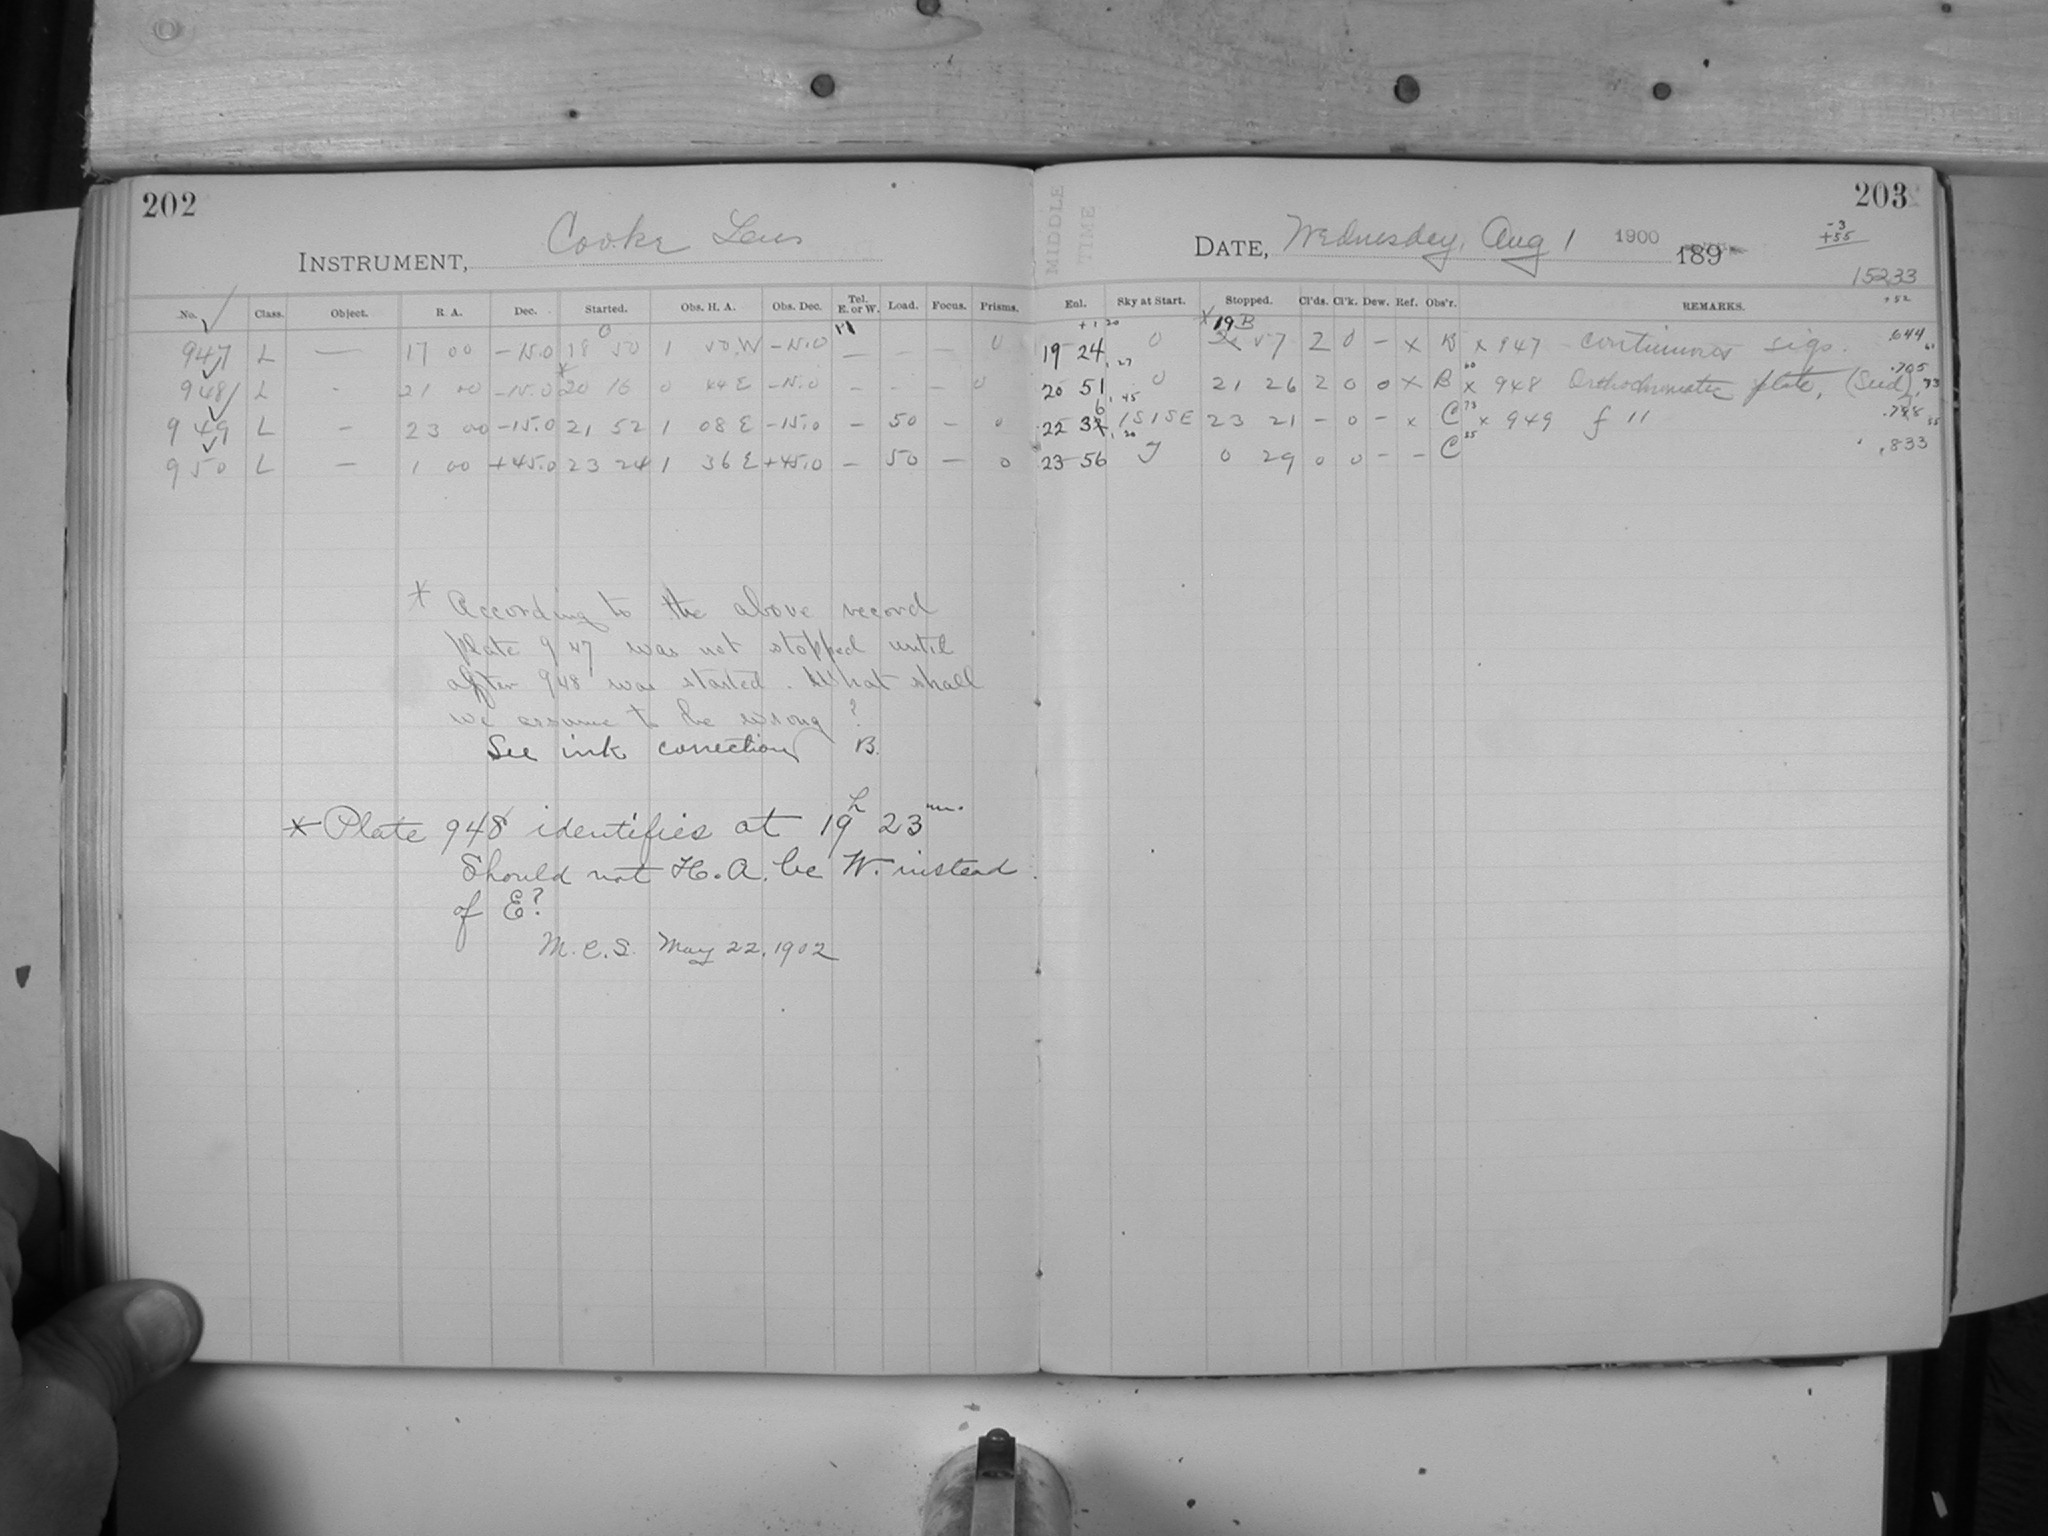 202
INSTRUMENT, Cooke Lens
No. Class. Object. R. A. Dec. Started. Obs. H. A. Obs. Dec. Tel. E. or W. Load. Focus. Prisms.
947 L — 17 00 -15.0 18 50 1 50 W -15.0 — — — 0
948 L - 21 00 -15.0 20 16 0 44 E -15.0 - - - 0
949 L - 23 00 -15.0 21 52 1 08 E -15.0 - 50 - 0
950 L - 1 00 +45.0 23 24 1 36 E +45.0 - 50 - 0
* According to the above record
plate 947 was not stopped until
after 948 was started. What shall
we assume to be wrong?
See ink correction B.
* Plate 948 identifies at 19h 23m.
Should not H.A. be W. instead
of E?
M.C.S. May 22, 1902
MIDDLE
TIME
203
DATE, Wednesday, Aug 1 1900 189
-3
+55
15233
+52
Enl. Sky at Start. Stopped. Cl'ds. Cl'k. Dew. Ref. Obs'r. REMARKS.
+1 20 * 19 B
19 24 0 57 2 0 - x B x 947 continuous sigs. .644
20 51 0 21 26 2 0 0 x B x 948 Orthochromatic plate, (Seed) .705
22 36 1S1SE 23 21 - 0 - x C x 949 f 11 .788
23 56 0 29 0 0 - - C .833